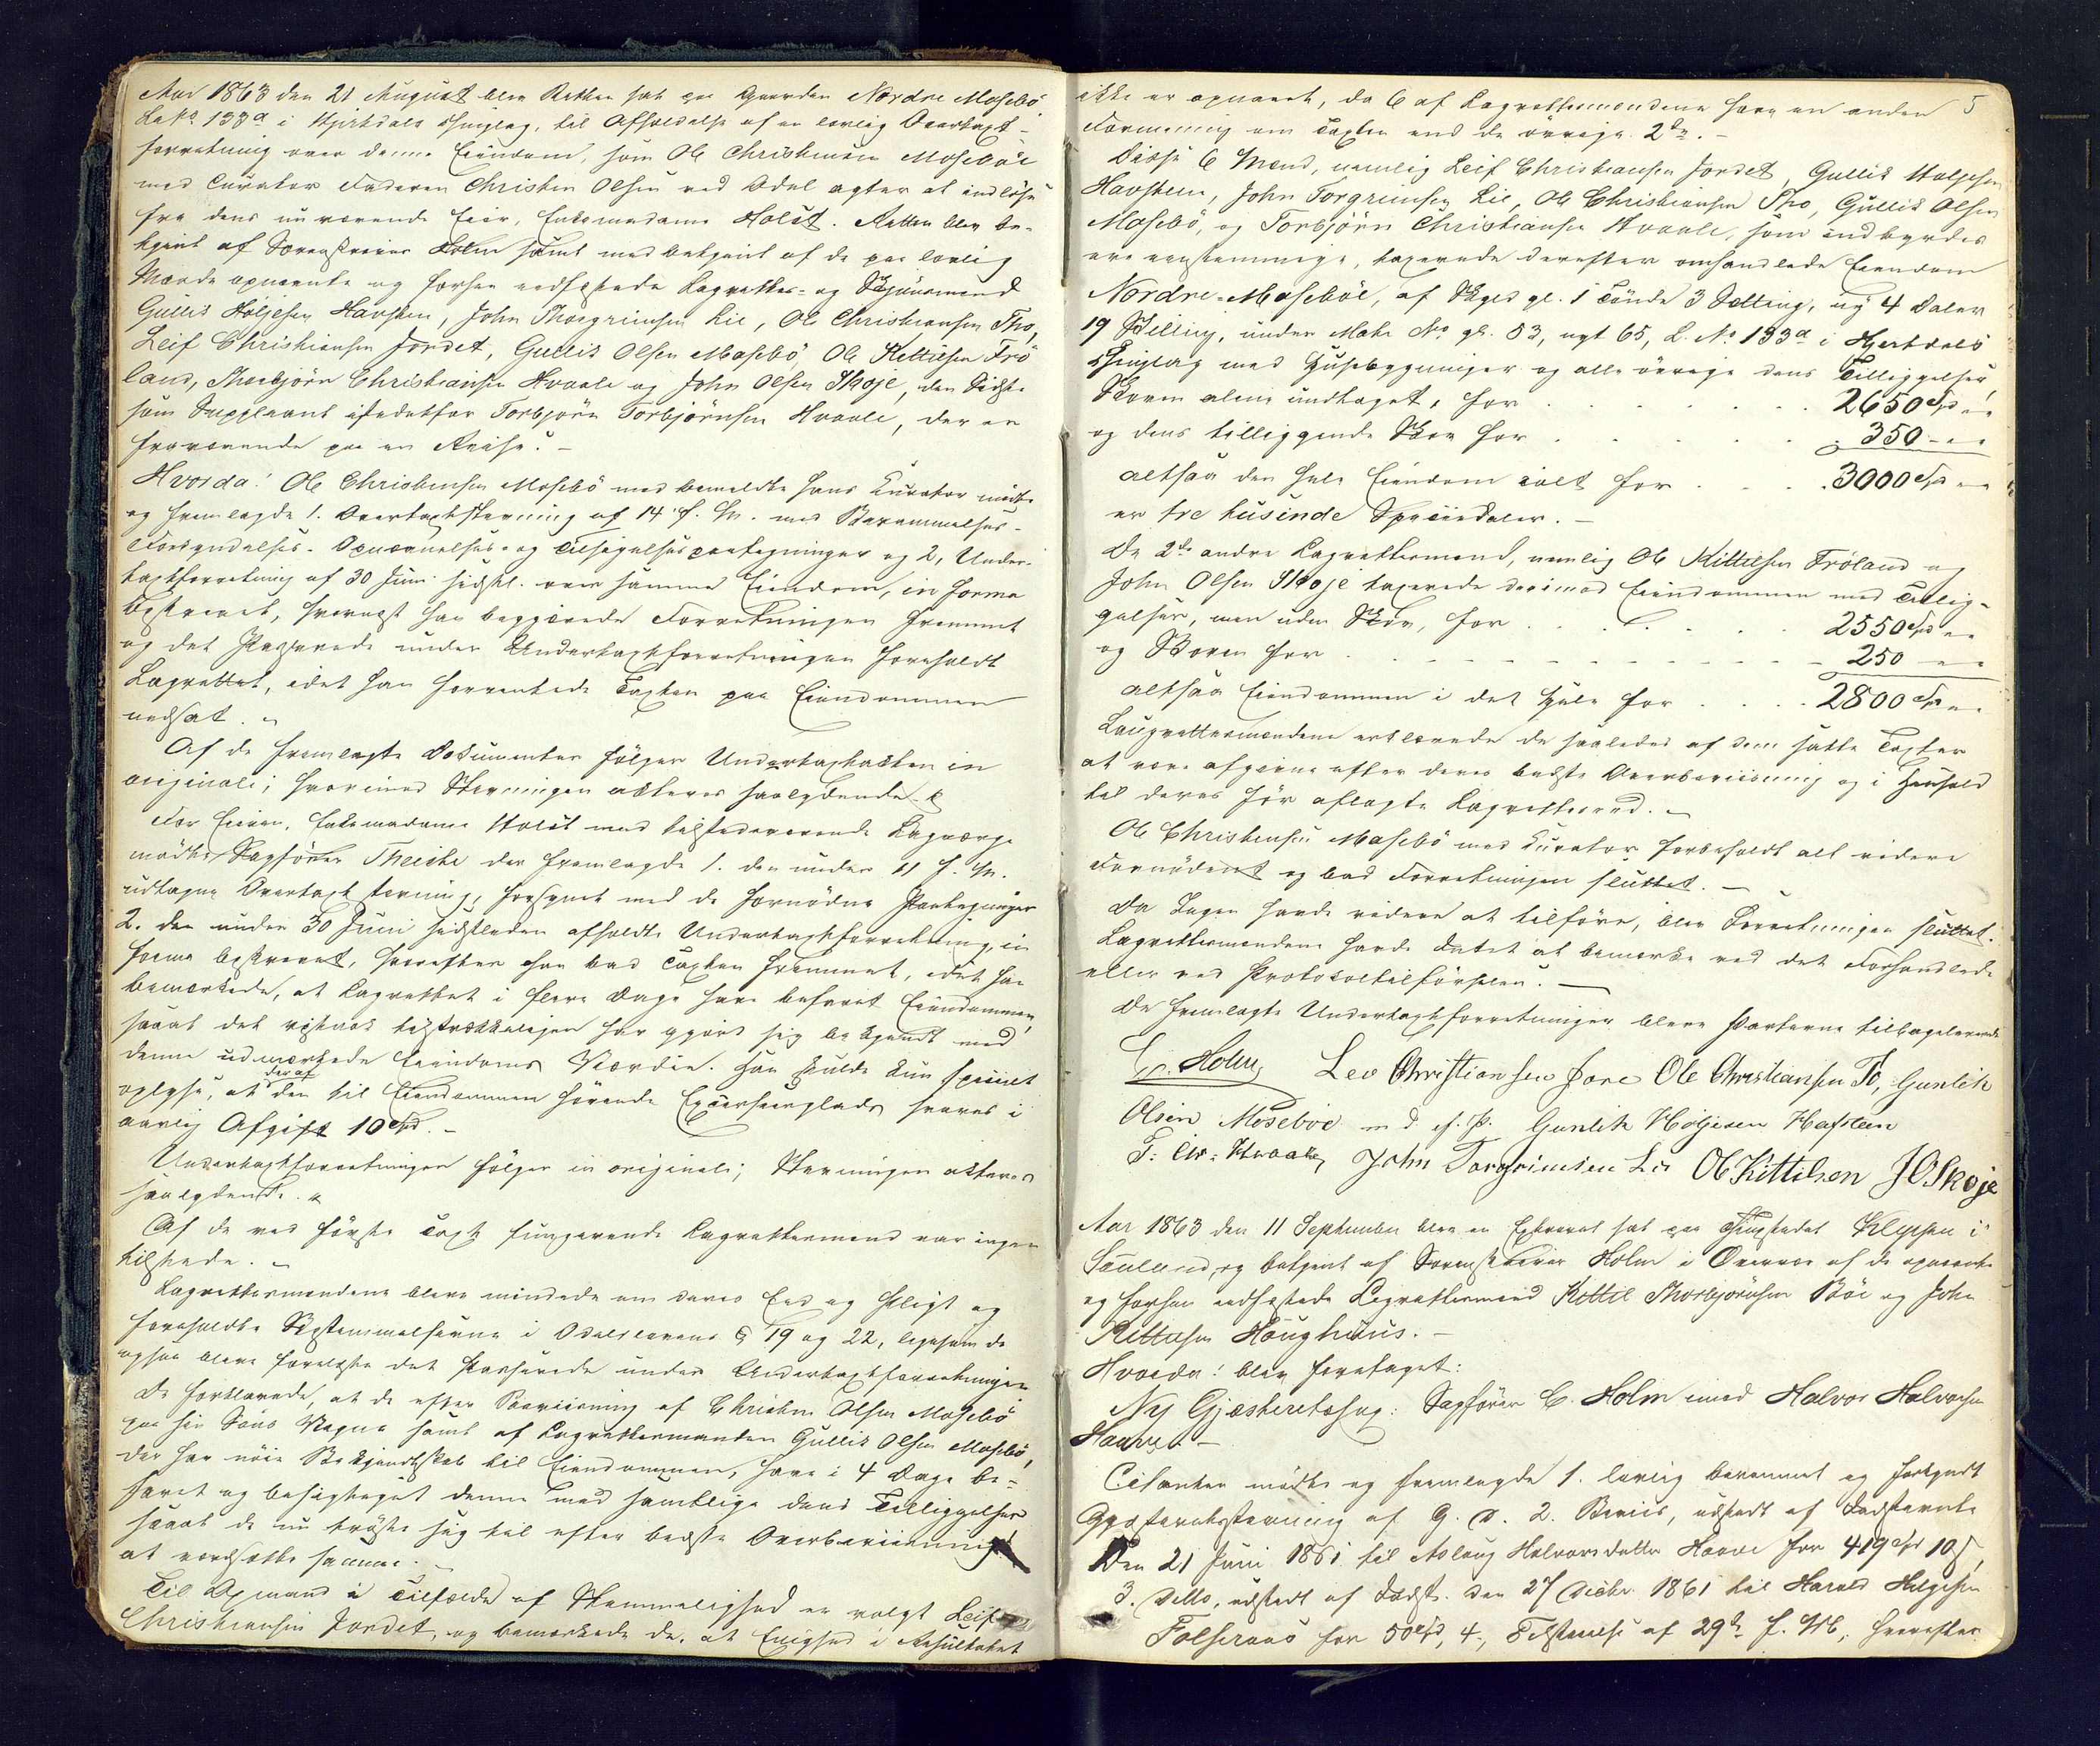 Aar 1863 den 21 August blev Retten sat paa Gaarden Nordre Mosebö
LNo 133a i Hjertdals Thinglag, til Afholdelse af en lovlig Overtaxt-
forretning over denne Eiendom, som Ole Christensen Moseböe
med Curator Faderen Christen Olsen ved Odel agter at indløse
fra dens nuværende Eier, Enkemadame Holst. Retten blev be-
tjent af Sorenskriver Holm samt med betjent af de paa lovlig
Maade opnævnte og forhen eedfæstede Lagrettes- og Skjönsmænd
Gullik Höljesen Havsten, John Thorgrimsen Lie, Ole Christiansen Tho,
Leif Christiansen Jordet, Gullik Olsen Mosebö, Ole Kittilsen Frö
land, Thorbjörn Christiansen Hvaale og John Olsen Skoje, den Sidste
som Suppleant istedetfor Torbjörn Torbjörnsen Hvaale, der er
fraværende paa en Reise. –
Hvorda! Ole Christensen Mosebö med bemeldte hans Curator mödte
og fremlagde 1. Overtaxtstevning af 14 d. M. med Berammelses-
Forkyndelses- Opnævnelses- og Tilsigelsespaategninger og 2, Under-
taxtforretning af 30 Juni sidstl. over samme Eiendom, in forma
beskreven, hvornæst han begjærede Forretningen fremmet
og det Passerede under Undertaxtforretningen foreholdt
Lagrettet, idet han forventede Taxten paa Eiendommen
nedsat.
Af de fremlagte Dokumenter fölger Undertaxtakten in
originali; hvorimod Stevningen akteres saalydende
For Eieren, Enkemadame Holst med tilstedeværende Lagværge
mödte Sagförer Theiste der fremlagde 1. den under 11 d. M.
udtagne Overtaxtstevning, forsynet med de fornödne Paategninger
2. den under 30 Juni sidstleden afholdte Undertaxtforretning, in
forma beskreven, hvorefter han bad Taxten fremmet, idet han
bemærkede, at Lagrettet i flere Dage have befaret Eiendommen,
saaat det vistnok tilstrækkeligen har gjort sig bekjendt med
denne udmærkede Eiendoms Værdie. Han skulde kun specielt
oplyse, at deraf den til Eiendommen hörende Exerseerplads svares i
aarlig Afgift 10 Spd. –
Undertaxtforretningen fölger in originali; Stevningen akteres
saalydende.
Af de ved förste Taxt fungerende Lagrettesmænd var ingen
tilstede. –
Lagrettesmændene bleve mindede om deres Eed og Pligt og
foreholdte Bestemmelserne i Odelslovens § 19 og 22, ligesom de
ogsaa bleve forelæste det Passerede under Undertaxtforretningen
De forklarede, at de efter Paaviisning af Christen Olsen Mosebö
paa sin Söns Vegne samt af Lagrettesmanden Gullik Olsen Mosebö,
der har nöie Bekjendtskab til Eiendommen, have i 4 Dage be-
faret og besigtiget denne med samtlige dens Tilliggelser
saaat de nu tröste sig til efter bedste Overbeviisning
at værdsætte samme. –
Til Opmand i Tilfælde af Stemmelighed er valgt Leif
Christiansen Jordet, og bemærkede de, at Enighed i Resultatet
5
ikke er opnaaet, da 6 af Lagrettesmændene have en anden
Formening om Taxten end de övrige 2de. –
Disse 6 Mænd, nemlig Leif Christiansen Jordet, Gullik Höljesen
Havsteen, John Torgrimsen Lie, Ole Christiansen Tho, Gullik Olsen
Mosebö, og Torbjörn Christiansen Hvaale, som indbyrdes
ere eenstemmige, taxerede derefter omhandlede Eiendom
Nordre-Moseböe, af Skyld gl. 1 Tönde 3 Setting, ny 4 Daler
19 Skilling, under Matr No gl. 53, nyt 65, L. No 133a i Hjertdals
Thinglag med Huusebygninger og alle övrige dens Tilliggelser,
Skoven alene undtaget, for . . . . . . 2650 Spd
og dens tilliggende Skov for . . . . . . 350 -
altsaa den hele Eiendom ialt for . . . . 3000 Spd
er tre tusinde Speciedaler. –
De 2de andre Lagrettesmænd, nemlig Ole Kittilsen Fröland og
John Olsen Skoje taxerede derimod Eiendommen med Tillig-
gelser, men uden Skov, for . . . . . . 2550 Spd
og Skoven for - - - - - - - - 250 -
altsaa Eiendommen i det Hele for . . . . 2800 Spd
Laugrettesmændene erklærede de saaledes af dem satte Taxter
at være afgivne efter deres bedste Overbeviisning og i Henhold
til deres för aflagte Lagretteseed. –
Ole Christensen Mosebö med Curator forbeholdt alt videre
Fornödent og bad Forretningen sluttet. –
Da Ingen havde videre at tilföre, blev Forretningen sluttet.
Lagrettesmændene havde Intet at bemærke ved det Forhandlede
eller ved Protokoltilförselen. –
De fremlagte Undertaxtforretninger bleve Parterne tilbageleverede
Holm Lev Christiansen Jore Ole Christiansen To, Gunlik
Olsen Moseböe m. f. P. Gunlik Höljesen Hafsteen
T: Chr: Hvaale, John Torgrimsen Lie Ol Kittilsen J O Skoje
Aar 1863 den 11 September blev en Extraret sat paa Thingstedet Kleppen i
Sauland, og betjent af Sorenskriver Holm i Overvær af de opnævnte
og forhen eedfæstede Lagrettesmænd Kettil Thorbjörnsen Böe og John
Kittilsen Haughuus. –
Hvorda! blev foretaget:
Ny Gjæsteretssag: Sagförer C. Holm imod Halvor Halvorsen
Haave. –
Citanten mödte og fremlagde 1. lovlig berammet og forkyndt
Gjæsteretsstevning af G. D. 2. Beviis, udstedt af Indstevnte
Den 21 Juni 1861 til Aslaug Halvorsdatter Haave for 419 Spd 10 s,
3. Ditto, udstedt af Indst. den 27 Decbr 1861 til Harald Helgesen
Folseraas for 50 Spd, 4, Tilstaaelse af 29de f. M., hvorefter